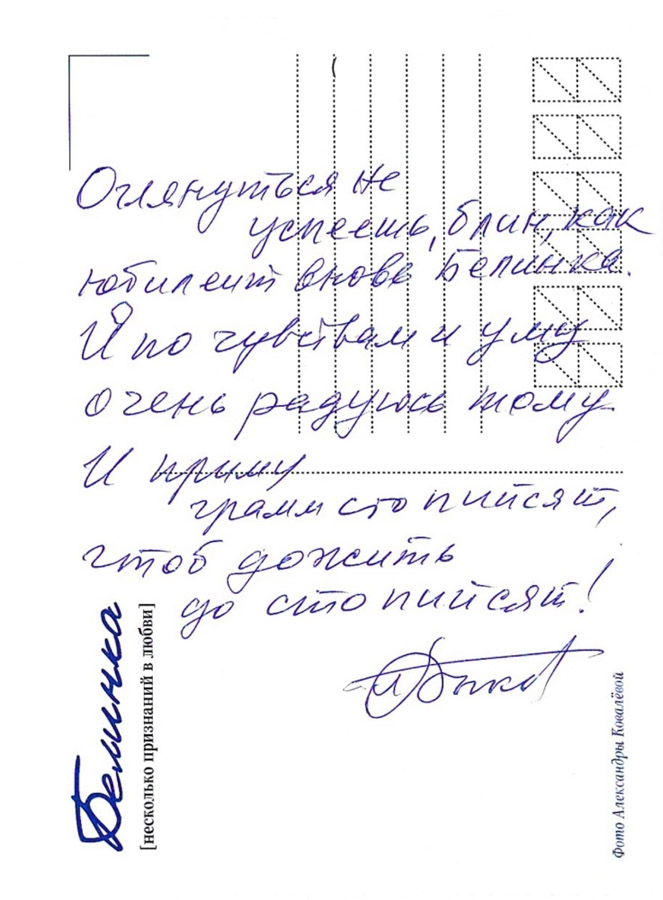 Оглянуться не
успеешь, блин, как
юбилеит вновь Белинка.
И по чувствам и уму
очень радуюсь тому
И приму
грамм сто пийсят,
чтоб дожить
до сто пийсят!
Белинка
[несколько признаний в любви]
Фото Александры Ковалёвой